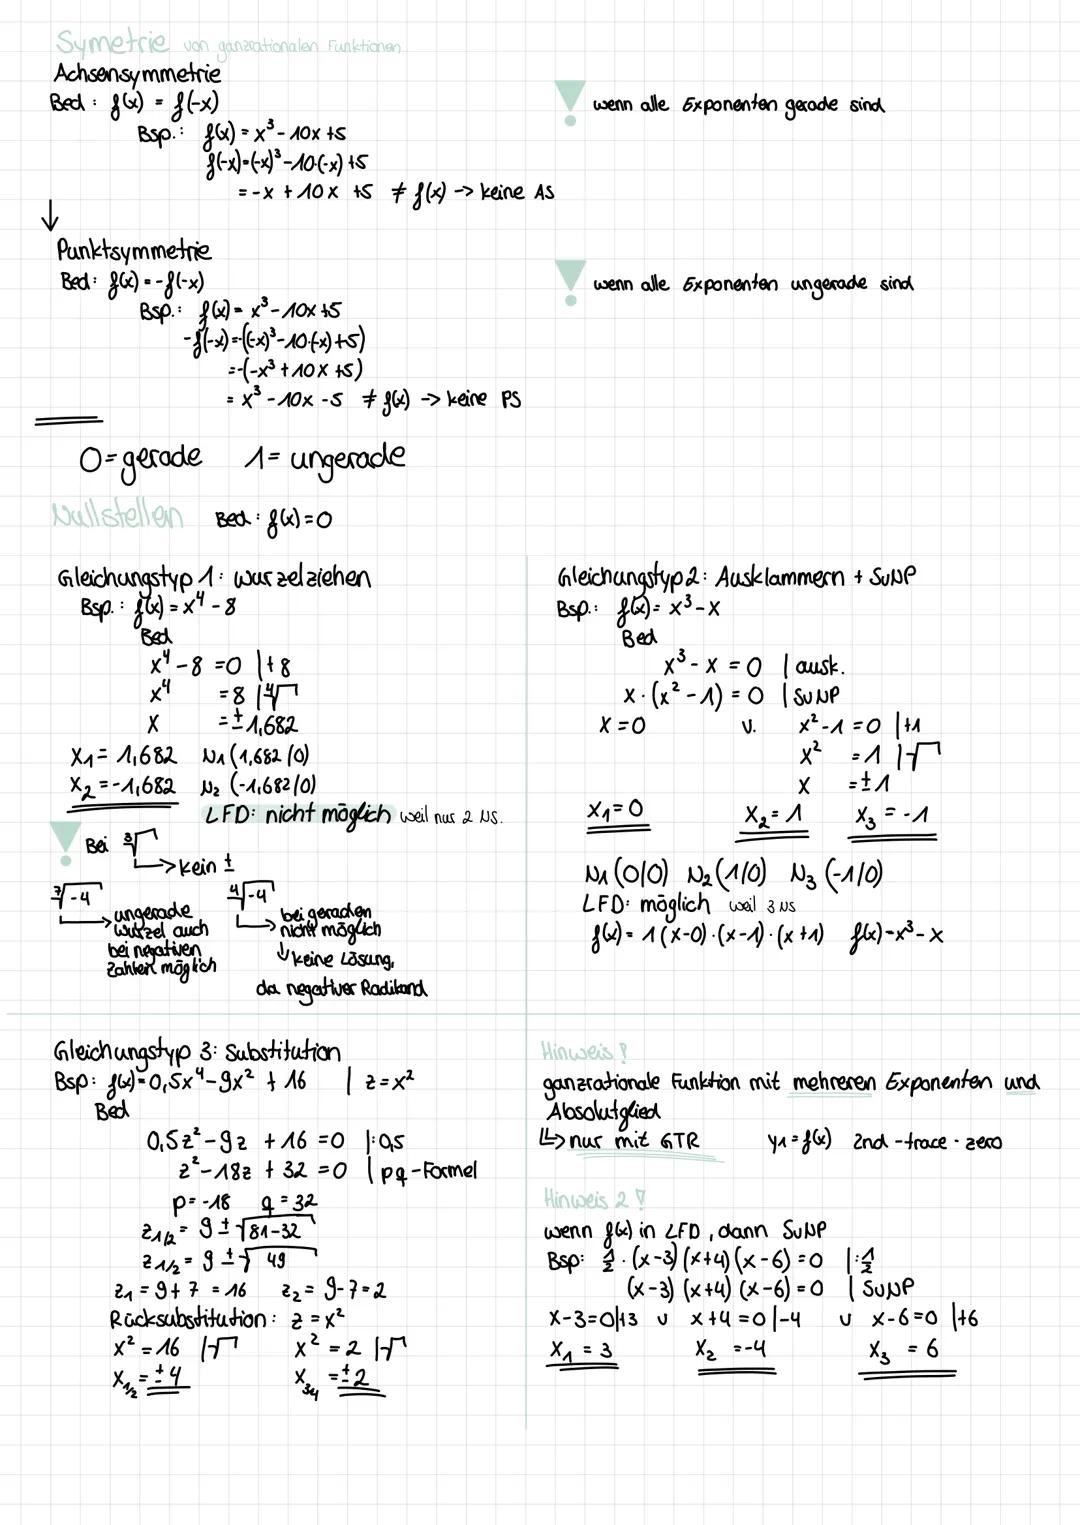 Symetrie von ganzrationalen Funktionen
Achsensymmetrie
Bed: f(x) = f(-x)
wenn alle Exponenten gerade sind
Bsp.: f(x) = x³ - 10x +5
f(-x)=(-x)³ -10·(-x) +5
= -x + 10x +5 ≠ f(x) -> keine AS
↓
Punktsymmetrie
Bed: f(x) = - f(-x)
wenn alle Exponenten ungerade sind
Bsp.: f(x) = x³ - 10x +5
-f(-x) =-((-x)³-10·(-x)+5)
=-(-x³ +10x +5)
= x³ - 10x -5 ≠ f(x) -> keine PS
0=gerade 1= ungerade
Nullstellen Bed: f(x)=0
Gleichungstyp 1: wurzelziehen
Bsp.: f(x) = x⁴ - 8
Bed
x⁴ - 8 =0 |+8
x⁴ =8 |⁴√
x =±1,682
x₁= 1,682 N₁ (1,682/0)
x₂=-1,682 N₂ (-1,682/0)
LFD: nicht möglich weil nur 2 NS.
Bei ³√
-> kein ±
⁷√-4
ungerade
wurzel auch
bei negativen
Zahlen möglich
⁴√-4
bei geraden
nicht möglich
↓ keine Lösung,
da negativer Radikand
Gleichungstyp 2: Ausklammern + SuNP
Bsp.: f(x)= x³-x
Bed
x³ - x = 0 | ausk.
x · (x² - 1) = 0 | SuNP
x = 0 v. x² -1 =0 |+1
x² =1 |√
x =±1
x₁=0 x₂= 1 x₃ = -1
N₁ (0/0) N₂ (1/0) N₃ (-1/0)
LFD: möglich weil 3 NS
f(x)= 1(x-0)·(x-1)·(x+1) f(x)=x³-x
Gleichungstyp 3: Substitution
Bsp: f(x)=0,5x⁴-9x² + 16 | z=x²
Bed
0,5z²-9z +16 =0 |:0,5
z²-18z + 32 =0 | pq-Formel
p= -18 q = 32
z1/2= 9 ± √81-32
z1/2= 9 ± √49
z₁ = 9+ 7 = 16 z₂ = 9-7=2
Rücksubstitution: z = x²
x² = 16 |√ x² = 2 |√
x1/2 = ±4 x34 =±2
Hinweis !
ganzrationale Funktion mit mehreren Exponenten und
Absolutglied
↳ nur mit GTR y1 = f(x) 2nd -trace - zero
Hinweis 2 !
wenn f(x) in LFD, dann SuNP
Bsp: 1/2 · (x-3) (x+4) (x-6) =0 |:1/2
(x-3) (x+4) (x-6) =0 | SuNP
x-3=0|+3 v x+4 =0|-4 v x-6=0 |+6
x₁ = 3 x₂ =-4 x₃ = 6